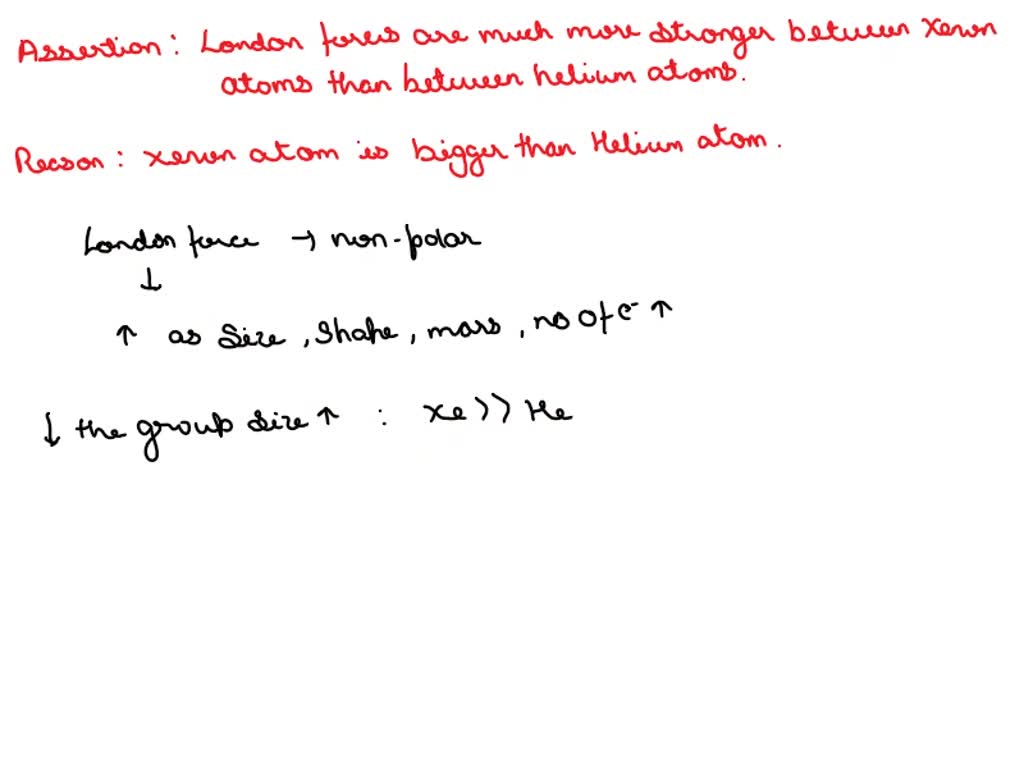 Assertion : London forces are much more stronger between Xenon
atoms than between helium atoms.
Reason : xenon atom is bigger than Helium atom .
London force → non-polar
↓
↑ as Size , Shape , mass , no of e⁻ ↑
↓ the group size ↑ : Xe >> He